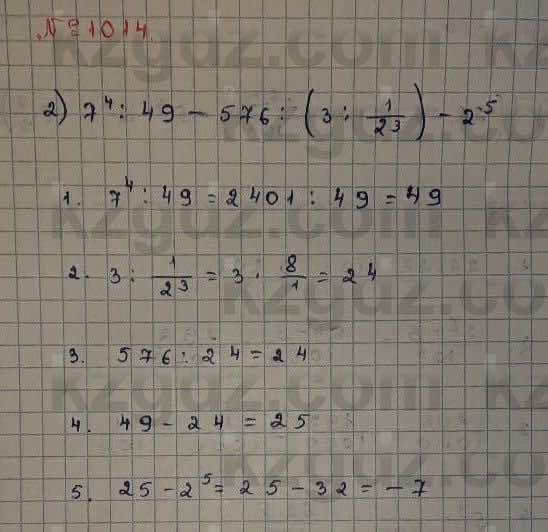 № 1014.
2) 7⁴ : 49 - 576 : (3 : 1/2³) - 2⁵
1. 7⁴ : 49 = 2401 : 49 = 49
2. 3 : 1/2³ = 3 · 8/1 = 24
3. 576 : 24 = 24
4. 49 - 24 = 25
5. 25 - 2⁵ = 25 - 32 = -7
kzgdz.com